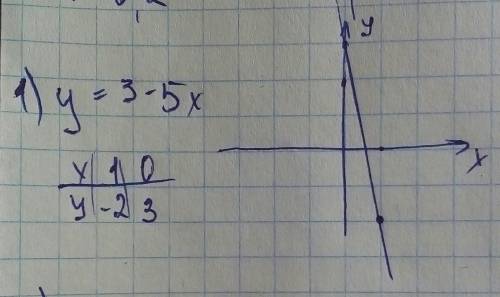 1) y = 3 - 5x
x | 1 | 0
y | -2 | 3
y
x